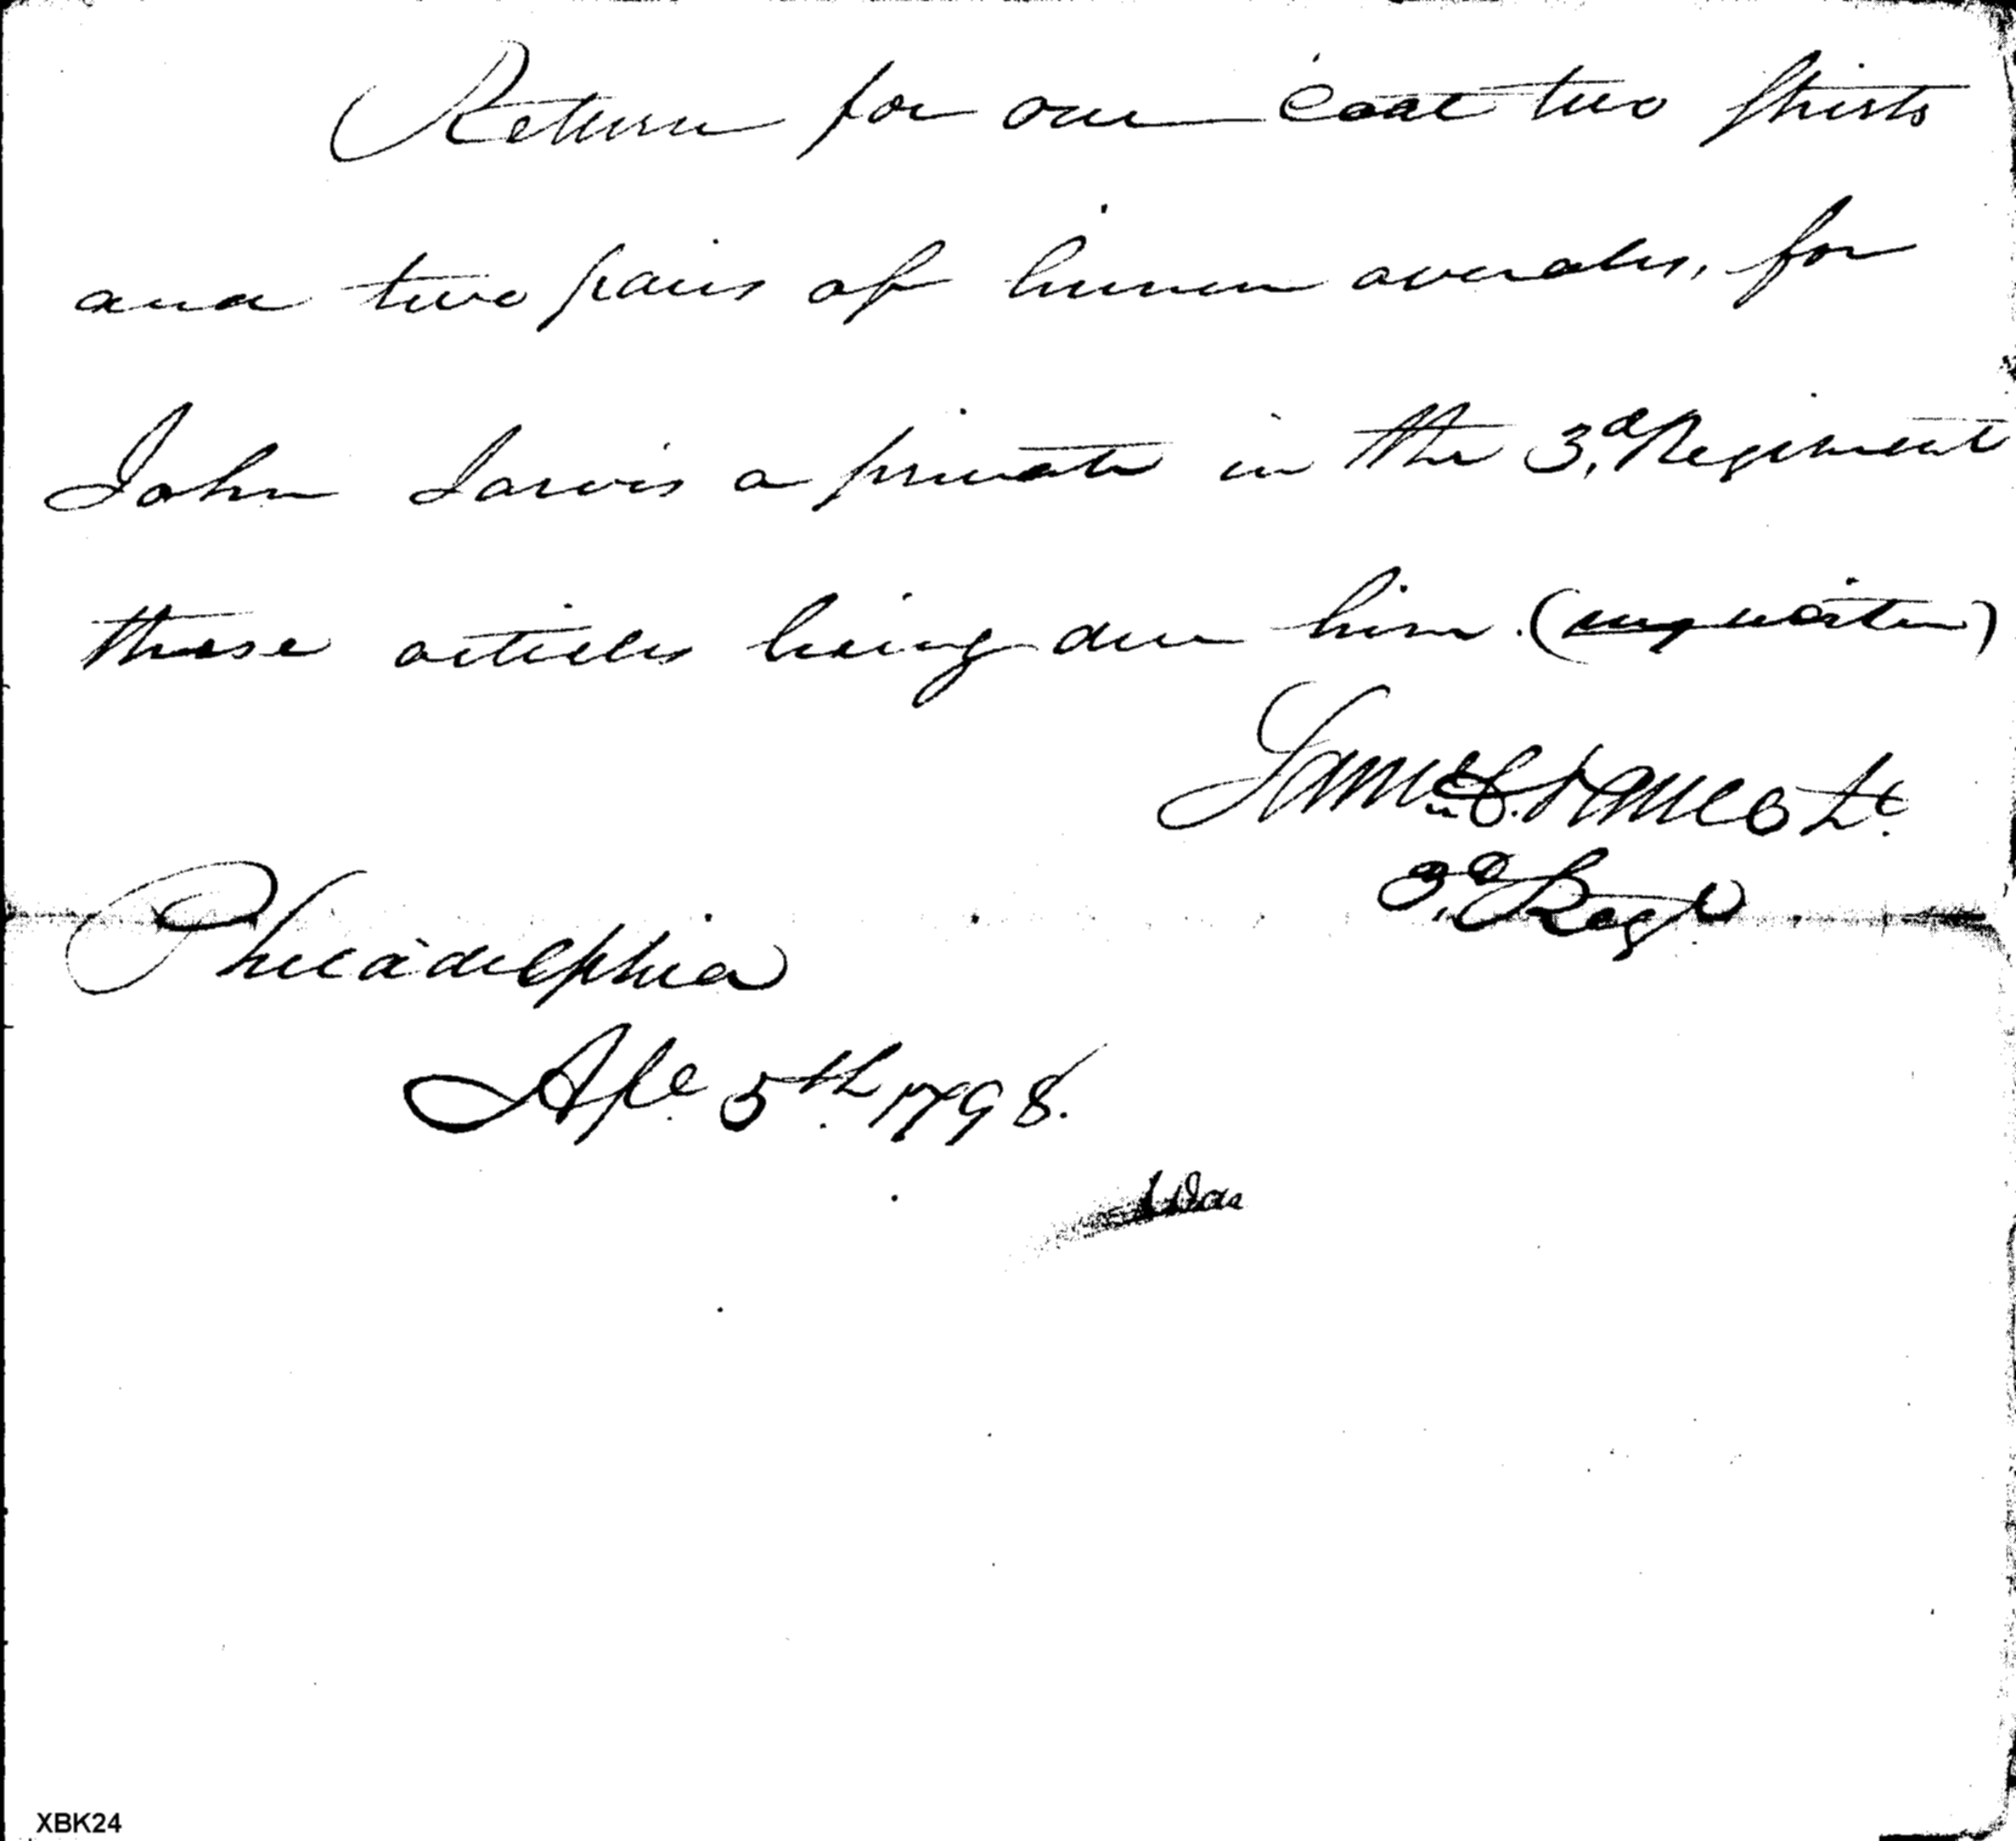 Return for one Coat two Shirts
and two pairs of linnen overalls, for
John Jarvis a private in the 3.d Regiment
these articles being due him. (
James S. Lt.
3.d Regt.
Philadelphia
Apl. 5th. 1798.
XBK24